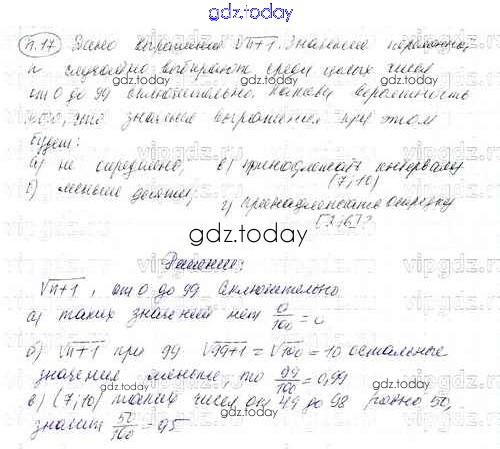 gdz.today
п.17 Дано выражение √n+1. Значение переменной
n случайно выбирают среди целых чисел
от 0 до 99 включительно. Какова вероятность
того, что значение выражения при этом
будет:
а) не определено; в) принадлежать интервалу
(7;10)
б) меньше десяти; г) принадлежать отрезку
[2;6]?
gdz.today
Решение:
√n+1, от 0 до 99 включительно
а) таких значений нет 0/100 = 0
gdz.today
б) √n+1 при 99 √99+1 = √100 = 10 остальные
значения меньше, то 99/100 = 0,99
в) (7;10) таких чисел от 49 до 98 равно 50,
значит 50/100 = 0,5
gdz.today